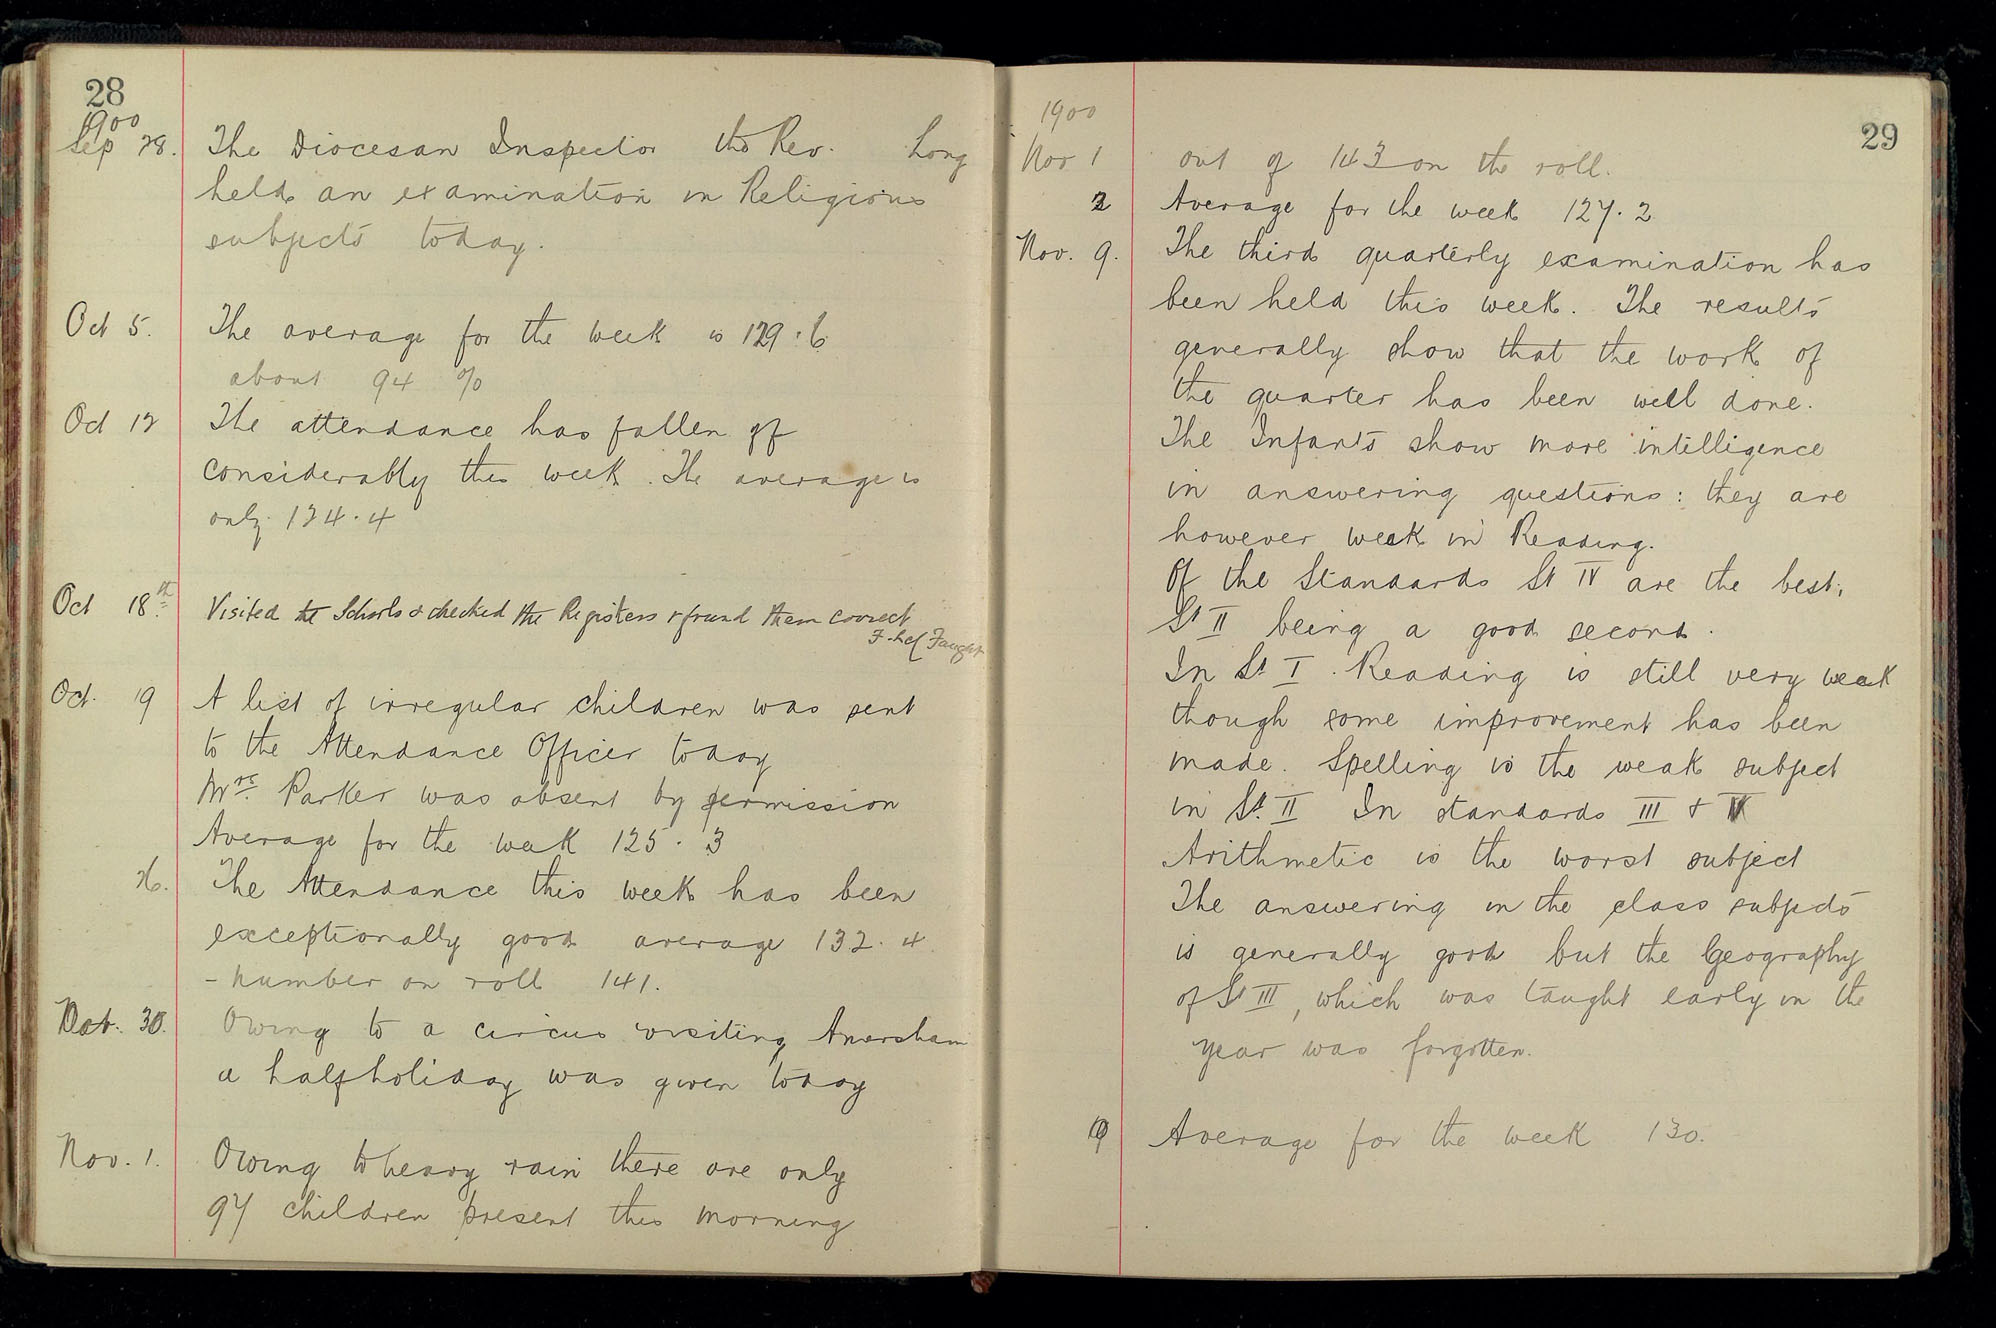 28
1900
Sep 28. The Diocesan Inspector the Rev. Long
held an examination in Religious
subjects today.
Oct 5. The average for the week is 129.6
about 94 %
Oct 12 The attendance has fallen off
considerably this week. The average is
only 124.4
Oct 18th Visited the Schools & checked the Registers & found them correct
Faught
Oct. 19 A list of irregular children was sent
to the Attendance Officer today
Mrs. Parker was absent by permission
Average for the week 125.3
26. The Attendance this week has been
exceptionally good average 132.4
- number on roll 141.
Oct. 30. Owing to a circus visiting Amersham
a half holiday was given today
Nov. 1. Owing to heavy rain there are only
97 children present this morning
29
1900
Nov 1 out of 143 on the roll.
2 Average for the week 127.2
Nov. 9. The third quarterly examination has
been held this week. The results
generally show that the work of
the quarter has been well done.
The Infants show more intelligence
in answering questions: they are
however weak in Reading.
Of the Standards St IV are the best,
St II being a good second.
In St. I. Reading is still very weak
though some improvement has been
made. Spelling is the weak subject
in St. II In standards III &
Arithmetic is the worst subject
The answering in the class subjects
is generally good but the Geography
of St III, which was taught early in the
year was forgotten.
9 Average for the week 130.